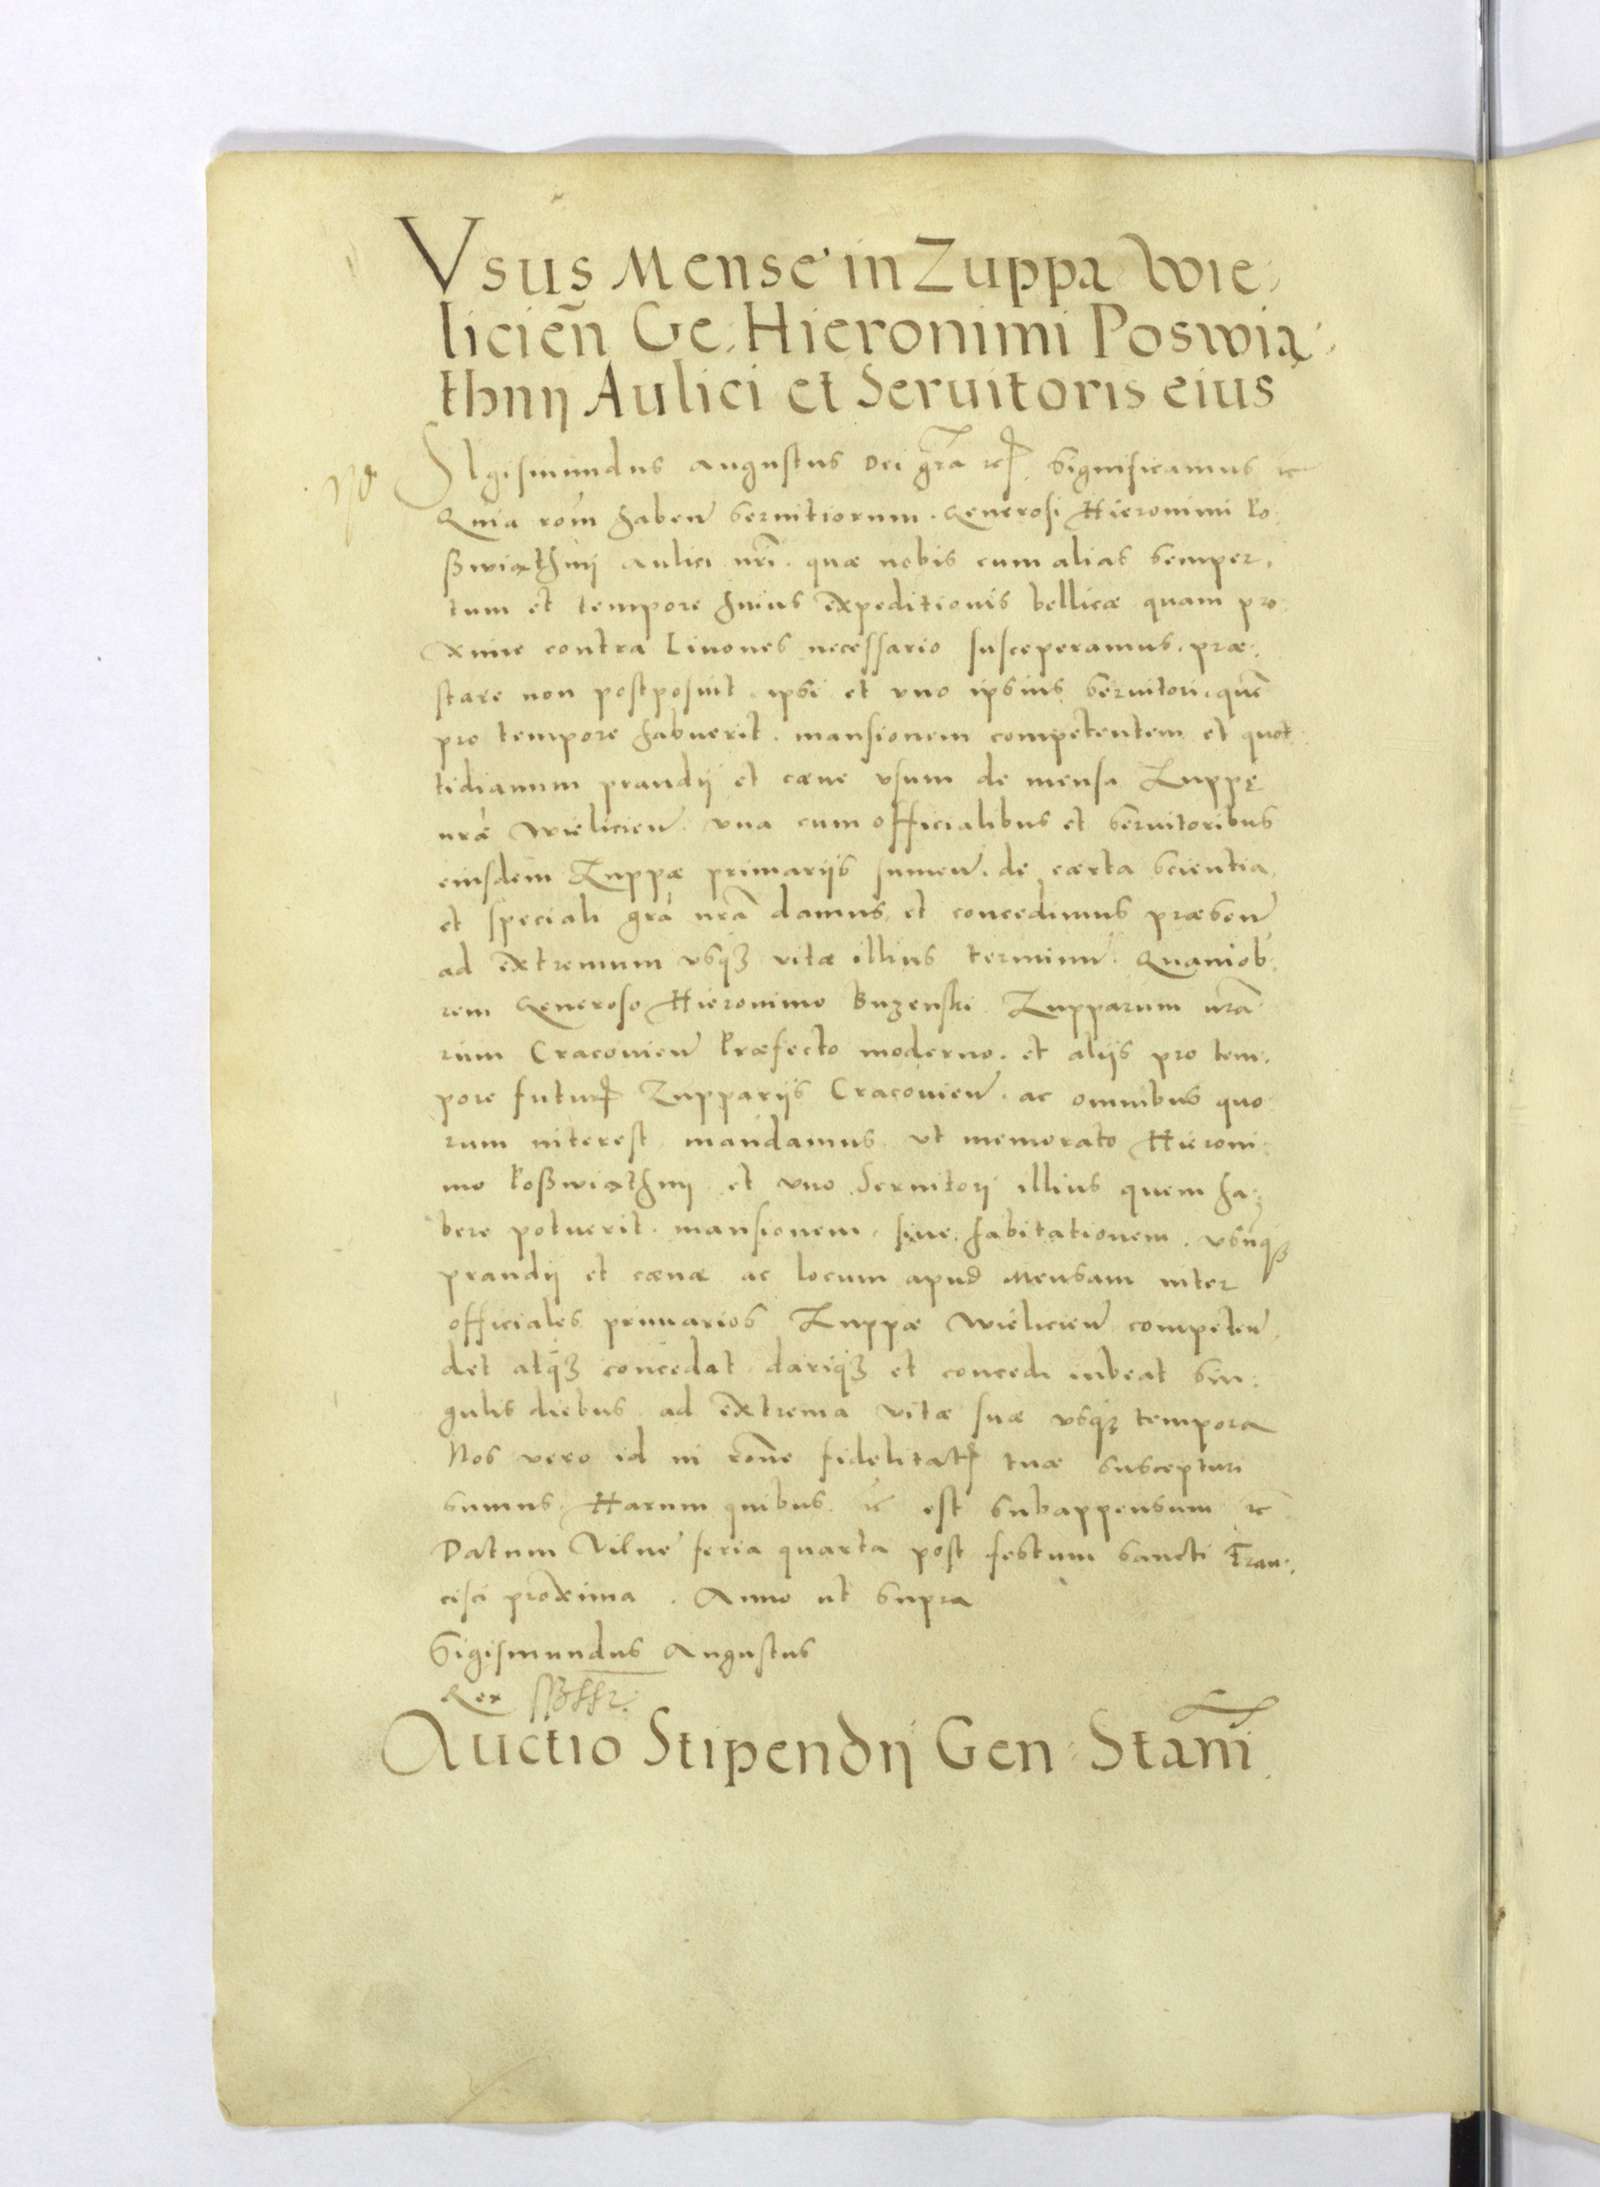 Vsus Mense in Zuppa Wie,
licień Ge, Hieronimi Poswią,
thnij Aulici et Seruitoris eius
SIgismundus Augustus Dei gr̃a rc̃ Significamus rc̃
Quia rom̃ haben̄ seruitiorum. Generosi Hieronimi Po,
sswiąthnij Aulici nr̃i. quæ nobis cum alias semper,
tum et tempore huius expeditionis bellicæ quam pro,
xime contra Liuones necessario susceperamus, præ,
stare non postposuit. ipsi et vno ipsius seruitori, quẽ
pro tempore habuerit. mansionem competentem et quot,
tidianum prandij et cæne vsum de mensa Zuppę
nr̃æ Wielicien̄. vna cum officialibus et seruitoribus
eiusdem Zuppæ primarijs sumen̄. de cærta scientia,
et speciali gr̃a nr̃a damus et concedimus præsen̄
ad extremum vsqꝫ vitæ illius terminũ. Quamob,
rem Generoso Hieronimo Buzenski Zupparum nr̃a
rum Cracouien̄ Præfecto moderno. et alijs pro tem,
pore futur̃ Zupparijs Cracouien̄. ac omnibus quo
rum interest mandamus vt memorato Hieroni,
mo Posswiąthnij et vno Seruitorj illius quem ha,
bere potuerit. mansionem, siue habitationem. vsũqꝫ
prandij et cænæ ac locum apud Mensam inter
officiales primarios Zuppæ Wielicien̄ competen̄,
det atqꝫ concedat dariqꝫ et concedi iubeat sin,
gulis diebus ad extrema vitæ suæ vsqꝫ tempora
Nos vero id in rõne fidelitat̃ tuæ suscepturi
sumus. Harum quibus rc̃ est subappensum rc̃
Datum Vilne feria quarta post festum sancti Fran,
cisci proxima. Anno ut supra
Sigismundus Augustus
Rex
Auctio Stipendij Gen Stanĩ.